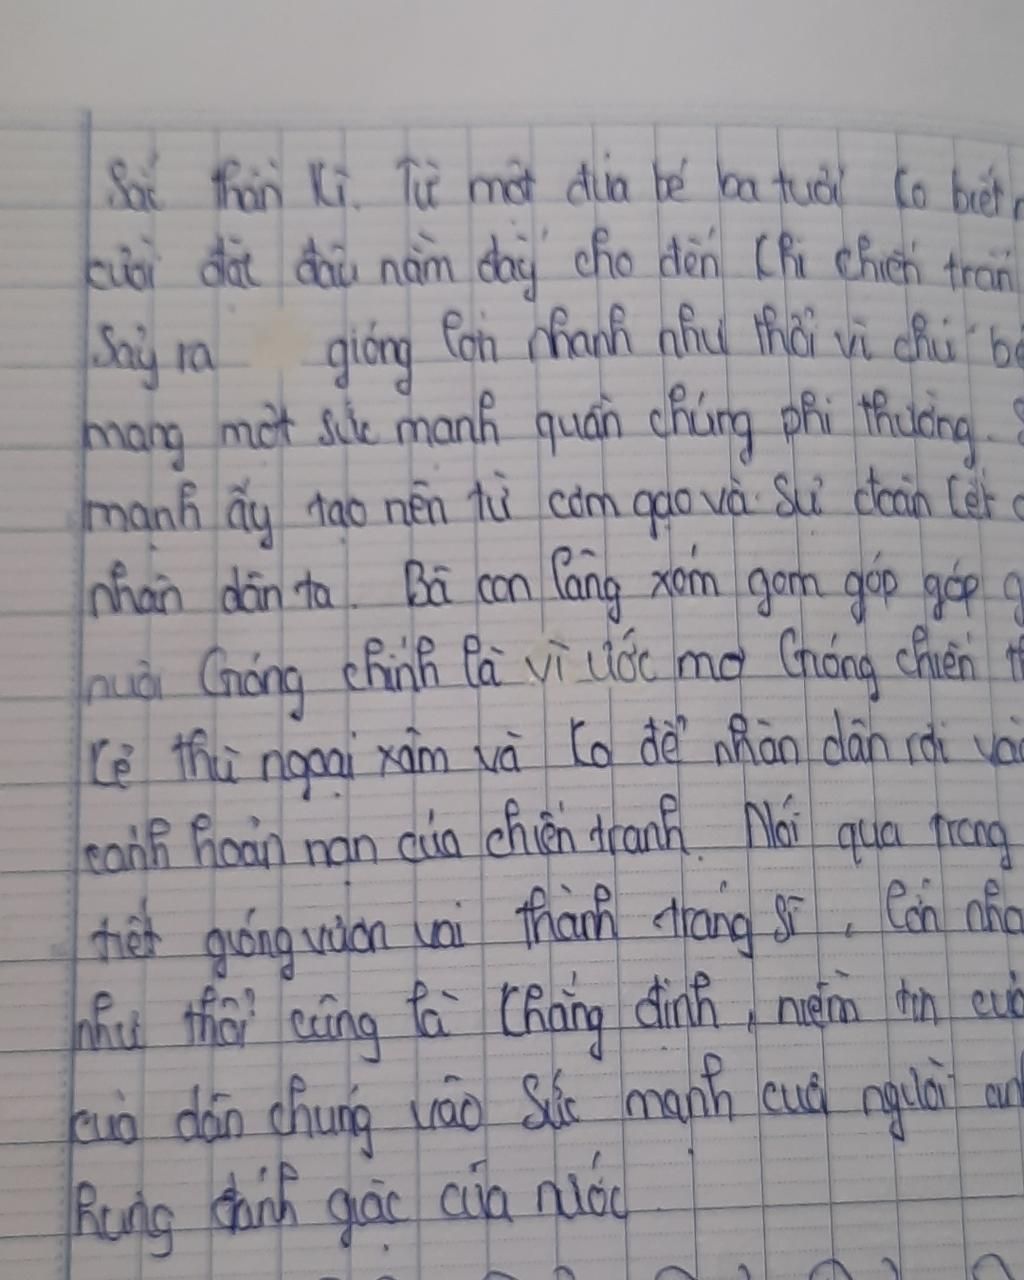 Sắc thần kì. Từ một đứa bé ba tuổi ko biết
cười đặt đâu nằm đấy cho đến khi chiến tran
Sảy ra gióng lớn nhanh như thổi vì chú bé
mang một sức mạnh quần chúng phi thường. S
mạnh ấy tạo nên từ cơm gạo và sự đoàn kết c
nhân dân ta. Bà con làng xóm gom góp góp g
nuôi Gióng chính là vì ước mơ Gióng chiến th
kẻ thù ngoại xâm và ko để nhân dân rơi vào
cảnh hoạn nạn của chiến tranh. Nói qua trong
tiết gióng vươn vai thành tráng sĩ, lớn nha
như thổi cũng là khẳng định, niềm tin của
của dân chúng vào sức mạnh của người an
hùng đánh giặc của nước